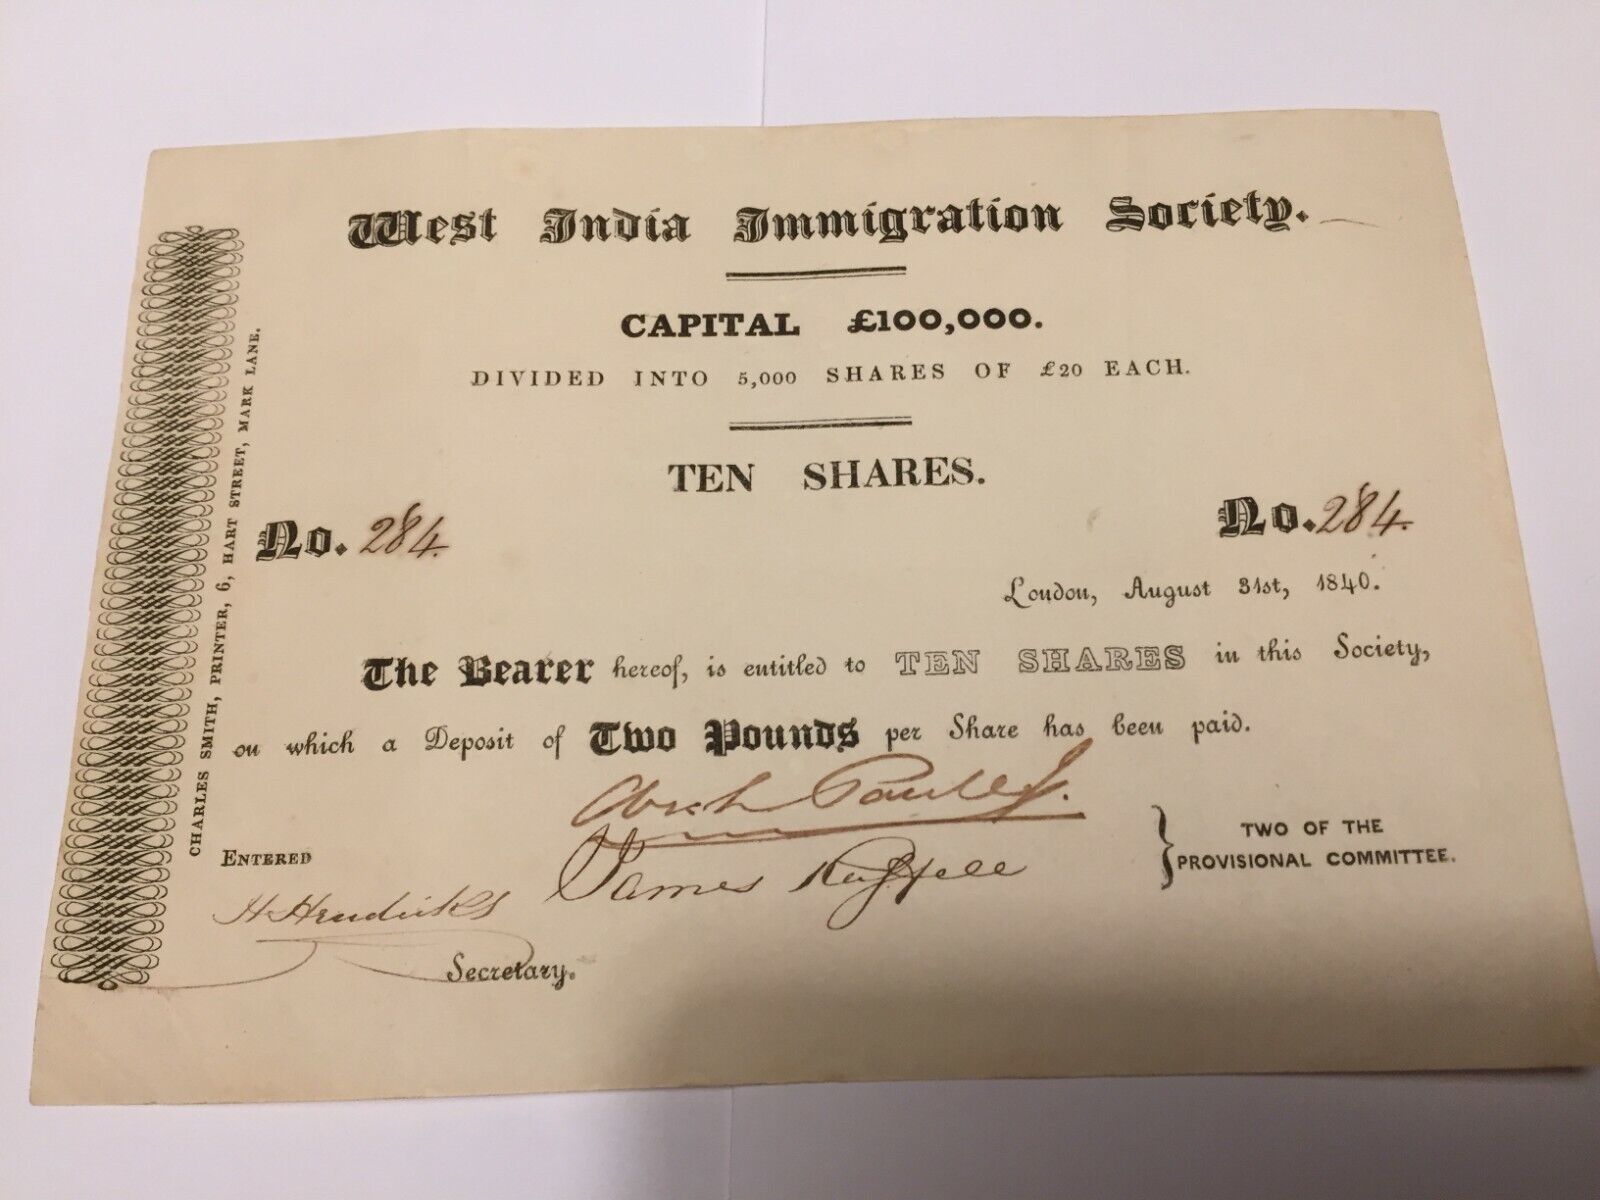 West India Immigration Society.
CAPITAL £100,000.
DIVIDED INTO 5,000 SHARES OF £20 EACH.
TEN SHARES.
No. 284. No. 284.
London, August 31st, 1840.
The Bearer hereof, is entitled to TEN SHARES in this Society,
on which a Deposit of Two Pounds per Share has been paid.
James
TWO OF THE
PROVISIONAL COMMITTEE.
ENTERED
H Hendricks
Secretary.
CHARLES SMITH, PRINTER, 6, HART STREET, MARK LANE.